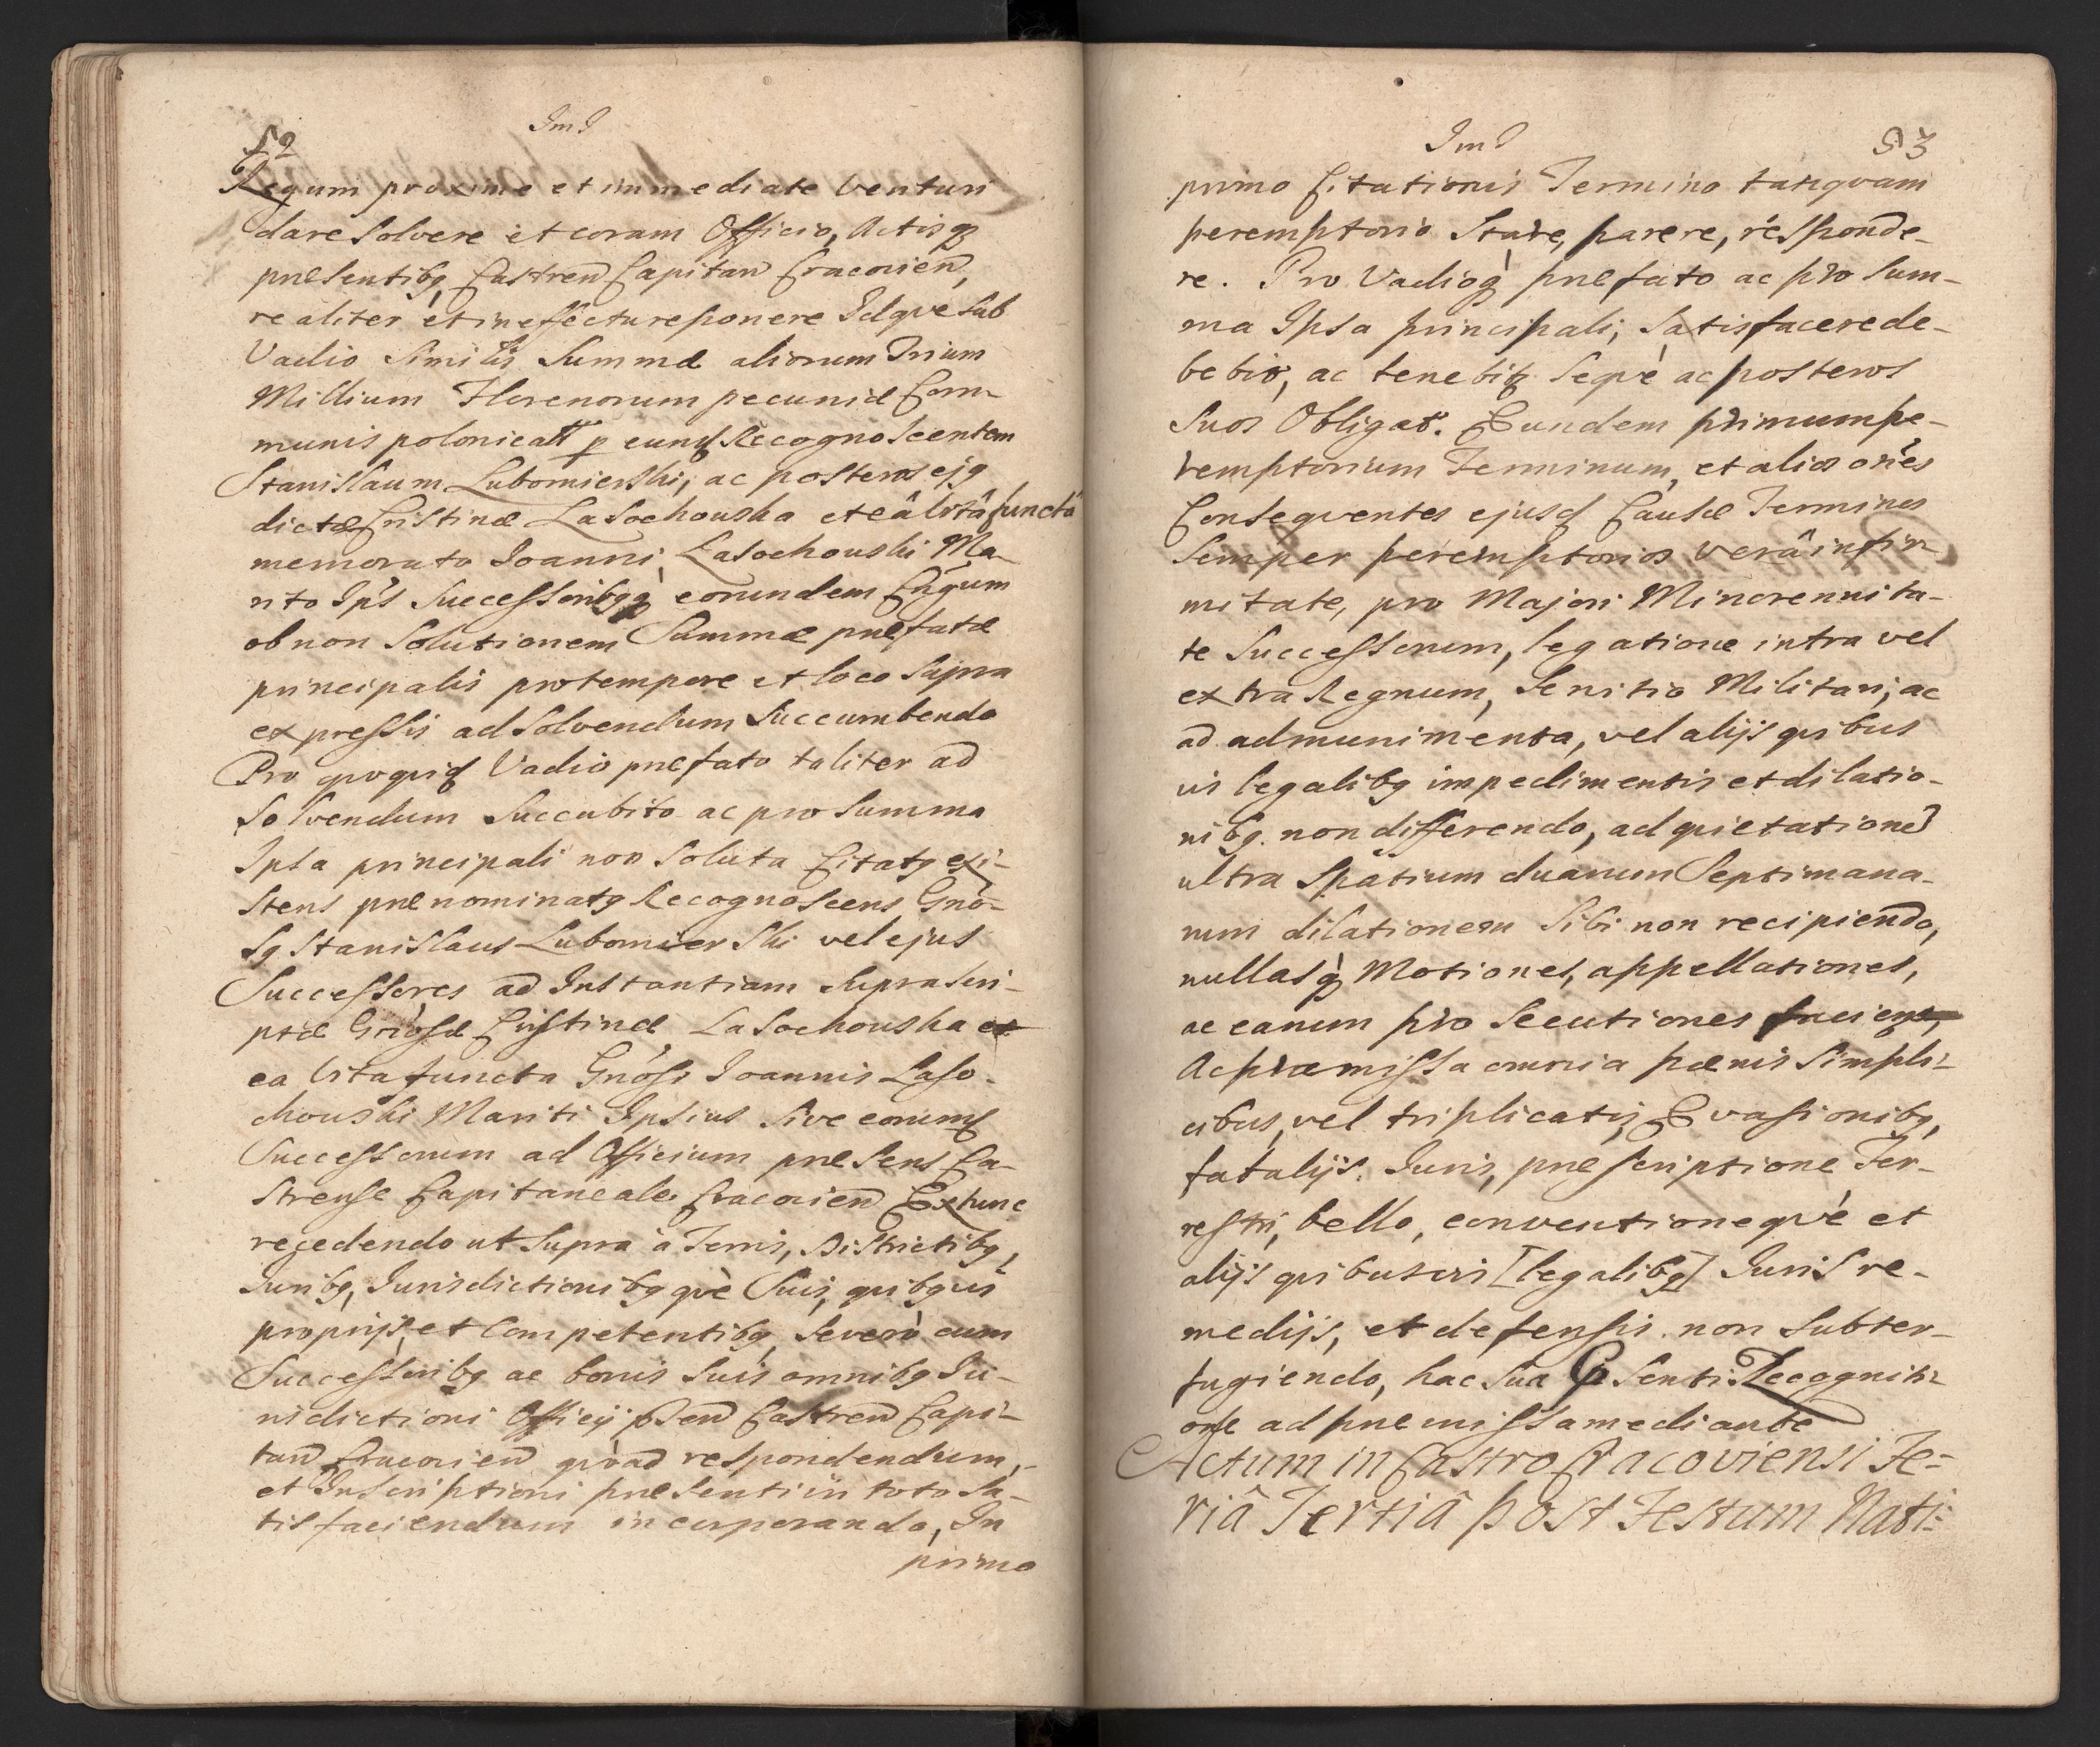 52
Im̄
Regum proxime et immediate venturi
dare solvere et coram Officio, Actisq;
præsentibq, Castren̄ Capitan̄ Cracovien̄,
realiter et in effectu reponere Idqve sub
Vadio similis Summæ aliorum Trium
Millium Florenorum pecuniæ Com-
munis polonicalt p eund Recognoscentem
Stanislaum Lubomierski, ac posteros ejq
dictæ Cristinæ Lasochouska et eâ vitâ functâ
memorato Joanni Lasochouski Ma-
rito Ips̄ Successoribqq̀ eorundem Cn̄gum
ob non Solutionem Summæ præfatæ
principalis pro tempore et loco Supra
expressis ad Solvendum Succumbendo
Pro qvoqvid Vadio præfato taliter ad
Solvendum Succubito ac pro Summa
Ipsa principali non Soluta Citatq exi-
stens prænominatq Recognoscens Gn̄o-
sq Stanislaus Lubomierski vel ejus
Successores ad Instantiam Suprascri-
ptæ Gn̄osæ Cristinæ Lasochouska et
ea Vita functa Gn̄osi Joannis Laso-
chouski Mariti Ipsius Sive eorumd
Successorum ad Officium præsens Ca-
strense Capitaneale Cracovien̄ Extunc
recedendo ut Supra à Terris, Districtibq,
Juribq, Jurisdictionibqqvè Suis, qvibqvis
proprijs, et Competentibq, Severò cum
Successoribq ac bonis Suis omnibq Ju-
risdictioni Officij pr̄sen̄ Castren̄ Capi-
tan̄ Cracovien̄ qvòad respondendum,
et Inscriptioni præsenti in toto Sa-
tisfaciendum incorporando, In
primo
Im̄
53
primo Citationis Termino tanqvam
peremptorio Stare, parere, responde-
re. Pro Vadioq̀ præfato ac pro Sum-
ma Ipsa principali, Satisfacere de-
bebit, ac tenebitq Seqvè ac posteros
Suos Obligat. Eundem primum pe-
remptorium Terminum, et alios on̄es
Conseqventes ejusd Causæ Terminos
Semper peremptorios, verâ infir-
mitate, pro Majori Minorennita-
te Successorum, legatione intra vel
extra Regnum, Servitio Militari, ac
ad admunimenta, vel alijs qvibus
vis legalibq impedimentis et dilatio-
nibq. non differendo, ad qvietatione]
ultra Spatium duarum Septimana-
rum dilationem Sibi non recipiendo,
nullasq̀ Motiones, appellationes,
ac earum pro Secutiones faciens,
Ac præmissa omnia pœnis Simpli-
cibus, vel triplicatis, Evasionibq,
fatalijs. Juris, præscriptione Ter-
restri, bello, conventioneqvè et
alijs qvibusvis [legalibq] Juris re-
medijs, et defensis non Subter-
fugiendo, hac Sua Præsenti Recogniti-
one ad præmissa mediante
Actum in Castro Cracoviensi Fe-
riâ Tertiâ post Festum Nati-